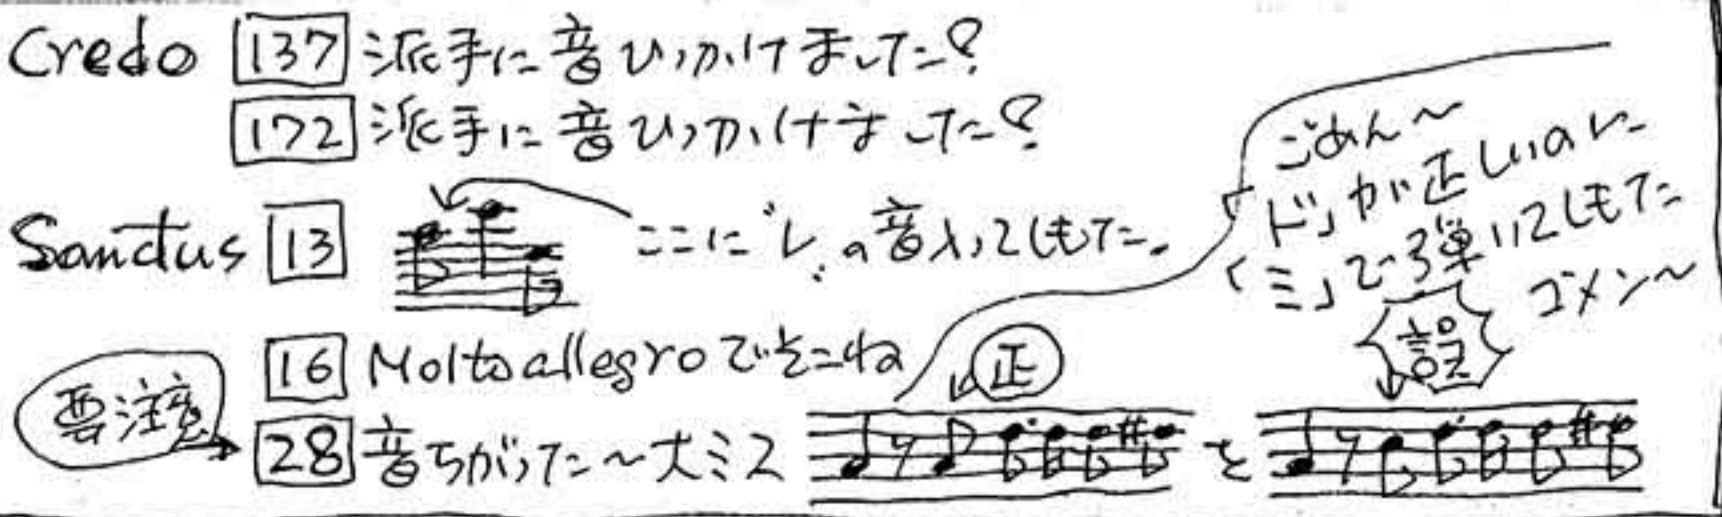 Credo 137 派手に音ひっかけました?
172 派手に音ひっかけました?
Sanctus 13 ここに"レ"の音入ってしもた。
16 Molto allegroでそこね
要注意
28 音ちがった〜大ミス 正 を 誤
ごめん〜
「ド」が正しいのに
「ミ」で弾いてしもた
ゴメン〜